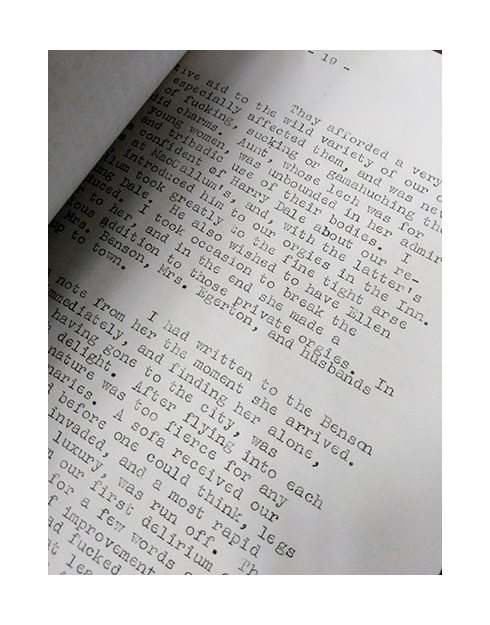 - 19 -
They afforded a very
tive aid to the wild variety of our
especially affected them, and was
of fucking, sucking or gamahuching the
did charms. Aunt, whose lech was for
young women, was unbounded in her
and tribadic use of their bodies. I
confident of Harry Dale about our re-
at MacCallum's, and, with the latter's
introduced him to our orgies in the Inn.
took greatly to the fine tight arse
Dale. He also wished to have Ellen
I took occasion to break the
to her, and in the end she made a
addition to those private orgies. In
Mrs. Benson, Mrs. Egerton, and husbands
up to town.
I had written to the Benson
note from her the moment she arrived.
immediately, and finding her alone,
having gone to the city, was
delight. After flying into each
nature was too fierce for any
A sofa received our
before one could think, legs
invaded, and a most rapid
luxury, was run off.
our first delirium
for a few words
improvement
fucked